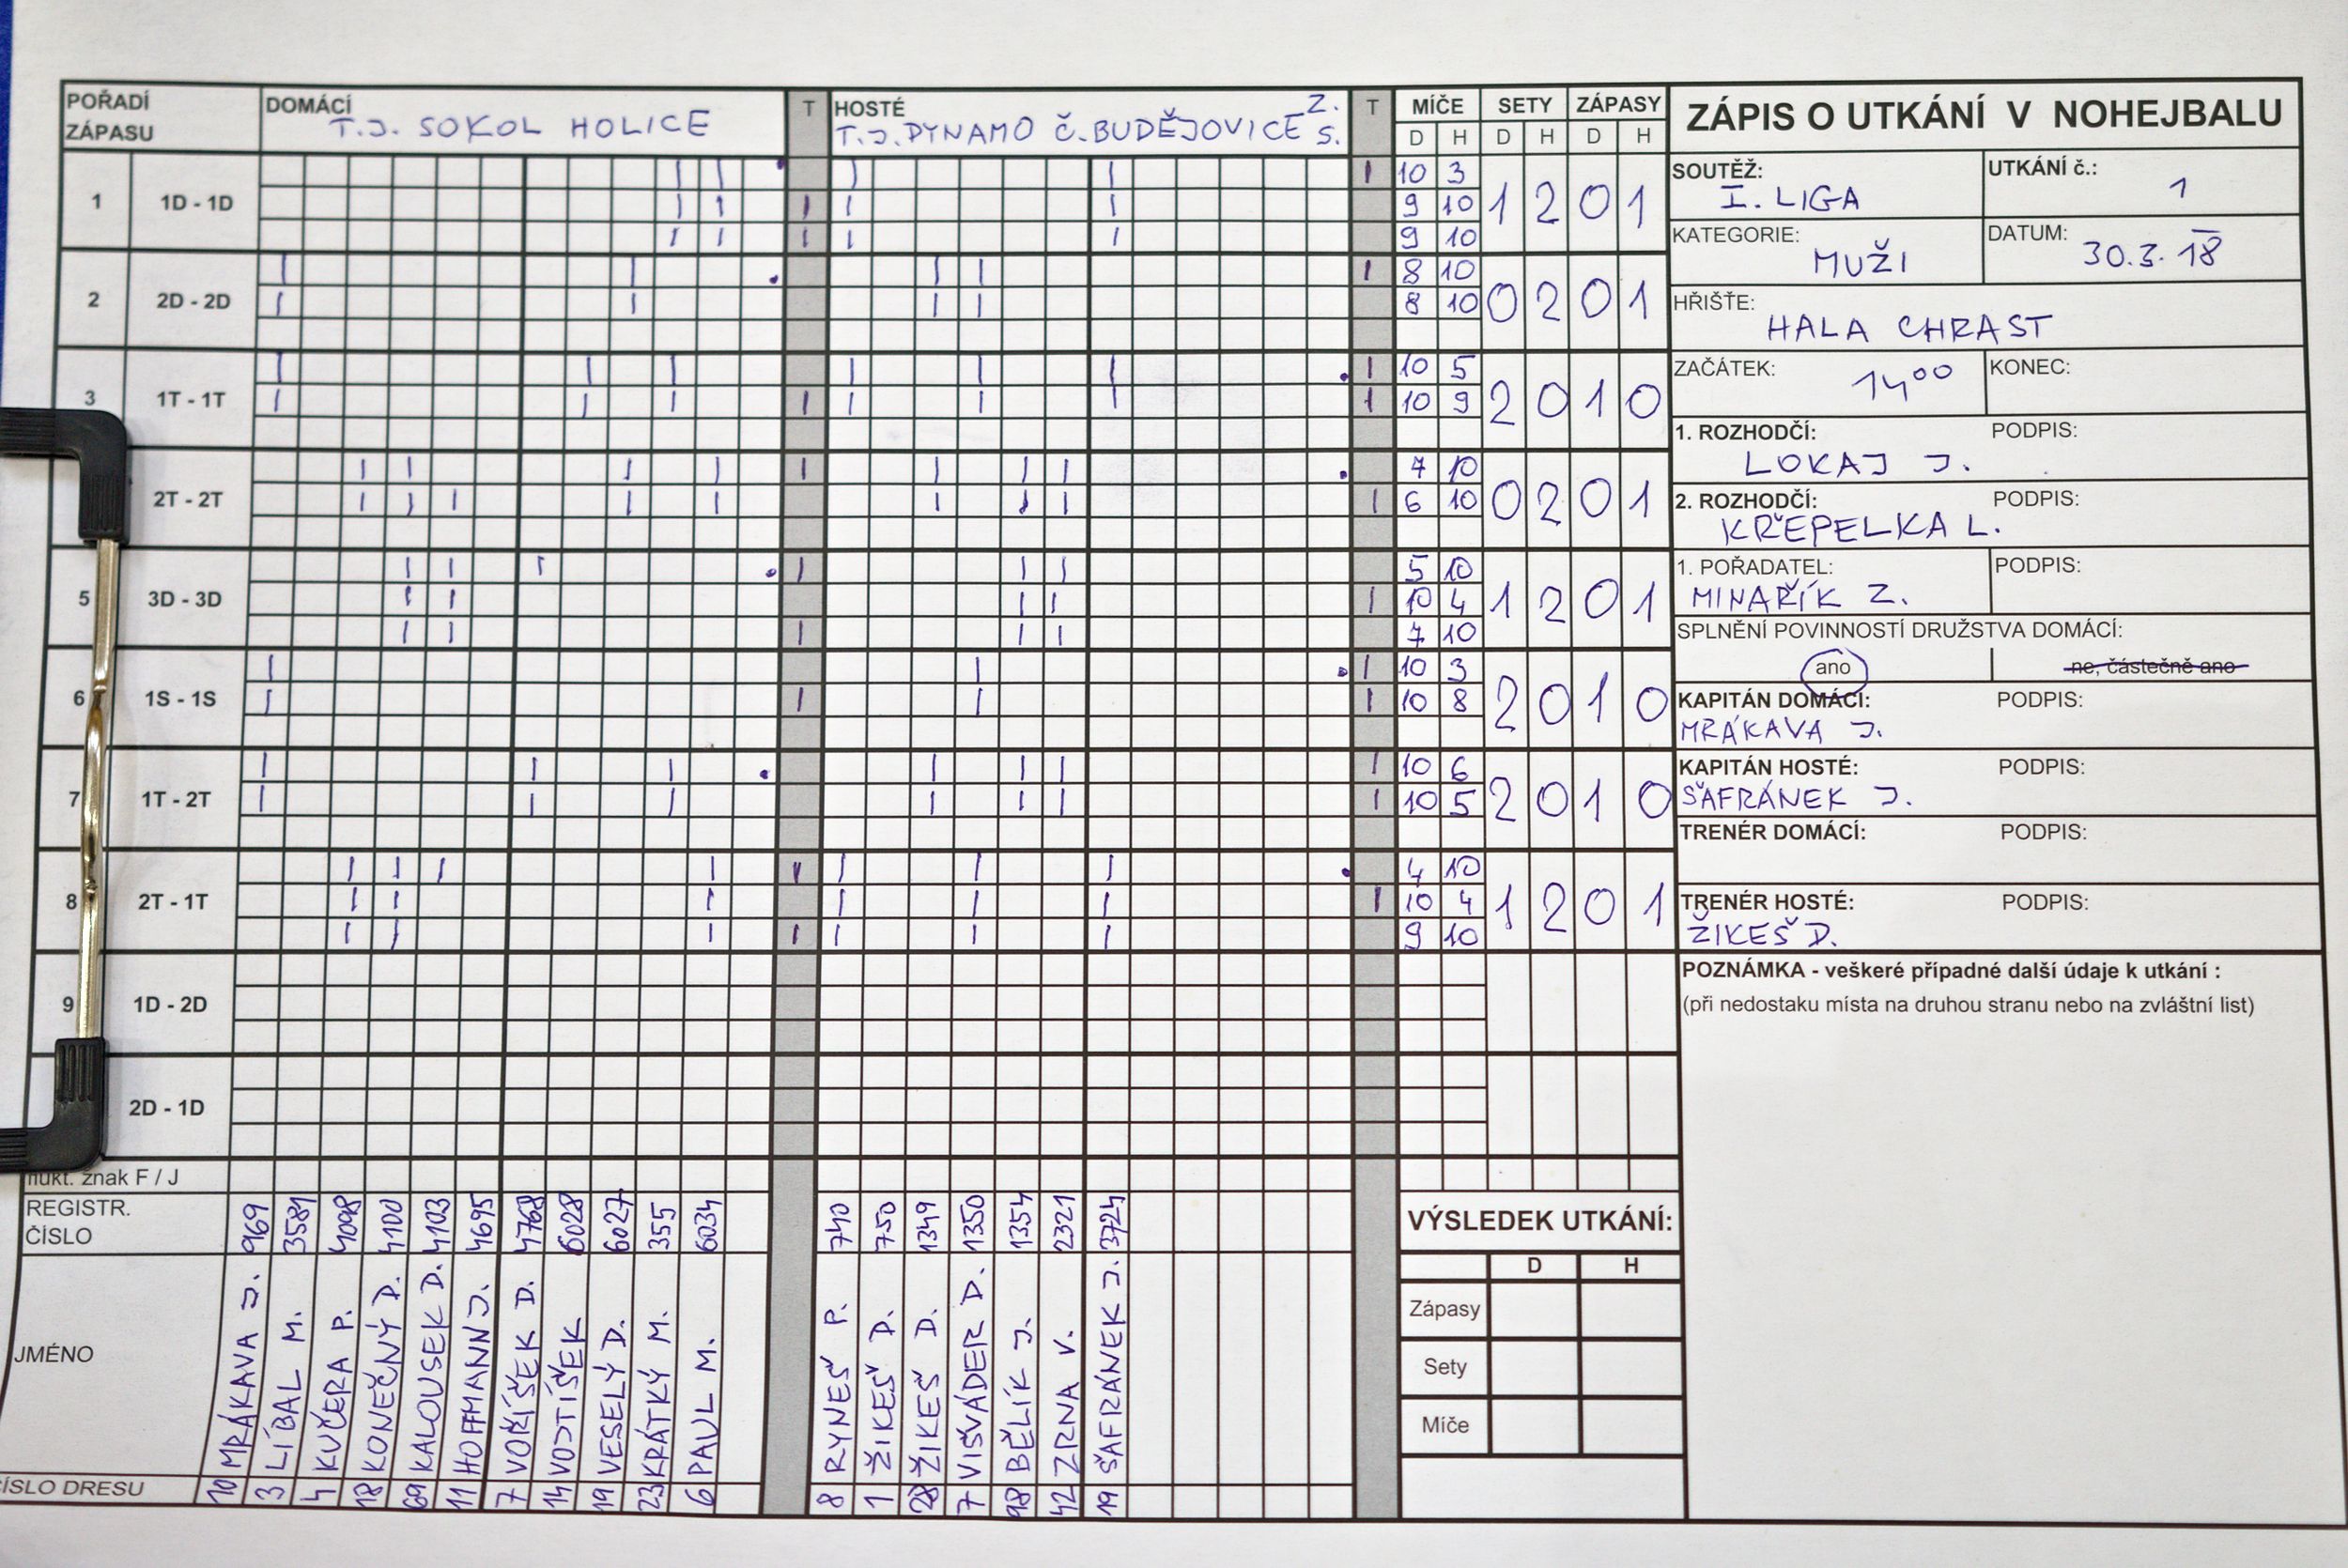 POŘADÍ ZÁPASU DOMÁCÍ T.J. SOKOL HOLICE T HOSTÉ T.J. DYNAMO Č.BUDĚJOVICE Z.S. T MÍČE SETY ZÁPASY
D H D H D H
1 1D - 1D 10 3 1 2 0 1
9 10
9 10
2 2D - 2D 8 10 0 2 0 1
8 10
3 1T - 1T 10 5 2 0 1 0
10 9
2T - 2T 7 10 0 2 0 1
6 10
5 3D - 3D 5 10 1 2 0 1
10 4
7 10
6 1S - 1S 10 3 2 0 1 0
10 8
7 1T - 2T 10 6 2 0 1 0
10 5
8 2T - 1T 4 10 1 2 0 1
10 4
9 10
9 1D - 2D
2D - 1D
znak F / J
REGISTR. ČÍSLO 969 3581 4098 4100 4103 4695 4768 6028 6027 355 6034 740 750 1349 1350 1354 2321 3724
JMÉNO MRÁKAVA J. LÍBAL M. KUČERA P. KONEČNÝ D. KALOUSEK D. HOFFMANN J. VOŘÍŠEK D. VOJTÍŠEK VESELÝ D. KRÁTKÝ M. PAUL M. RYNEŠ P. ŽIKEŠ D. ŽIKEŠ D. VIŠVÁDER D. BĚLÍK J. ZRNA V. ŠAFRÁNEK J.
ČÍSLO DRESU 10 3 4 18 69 11 7 14 19 23 6 8 1 28 7 98 42 19
ZÁPIS O UTKÁNÍ V NOHEJBALU
SOUTĚŽ: I. LIGA UTKÁNÍ č.: 1
KATEGORIE: MUŽI DATUM: 30.3.18
HŘIŠTĚ: HALA CHRAST
ZAČÁTEK: 14 00 KONEC:
1. ROZHODČÍ: PODPIS:
LOKAJ J.
2. ROZHODČÍ: PODPIS:
KŘEPELKA L.
1. POŘADATEL: PODPIS:
MINAŘÍK Z.
SPLNĚNÍ POVINNOSTÍ DRUŽSTVA DOMÁCÍ:
ano ne, částečně ano
KAPITÁN DOMÁCÍ: PODPIS:
MRÁKAVA J.
KAPITÁN HOSTÉ: PODPIS:
ŠAFRÁNEK J.
TRENÉR DOMÁCÍ: PODPIS:
TRENÉR HOSTÉ: PODPIS:
ŽIKEŠ D.
POZNÁMKA - veškeré případné další údaje k utkání :
(při nedostaku místa na druhou stranu nebo na zvláštní list)
VÝSLEDEK UTKÁNÍ:
D H
Zápasy
Sety
Míče